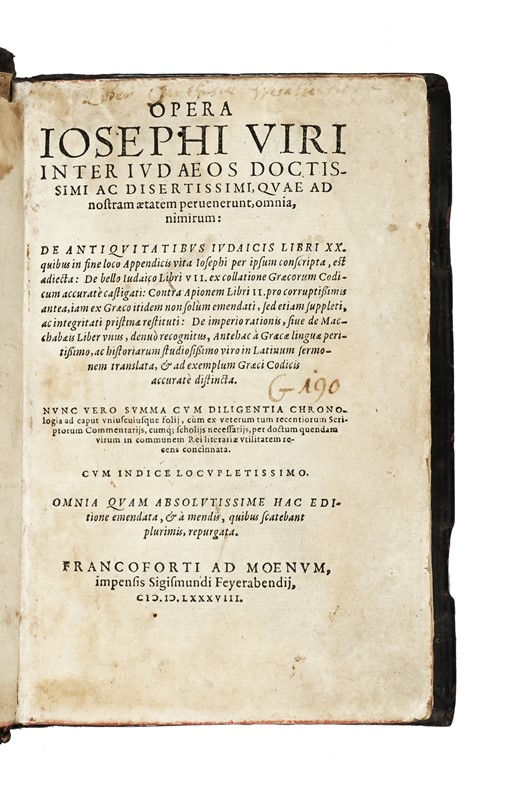 Liber
OPERA
IOSEPHI VIRI
INTER IVDAEOS DOCTIS-
SIMI AC DISERTISSIMI, QVAE AD
noſtram ætatem peruenerunt, omnia,
nimirum:
DE ANTIQVITATIBVS IVDAICIS LIBRI XX.
quibus in fine loco Appendicis vita Ioſephi per ipſum conſcripta, eſt
adiecta: De bello Iudaico Libri VII. ex collatione Græcorum Codi-
cum accuratè caſtigati: Contra Apionem Libri II. pro corruptiſſimis
antea, iam ex Græco itidem non ſolùm emendati, ſed etiam ſuppleti,
ac integritati priſtinæ reſtituti: De imperio rationis, ſiue de Mac-
chabæis Liber vnus, denuò recognitus, Antehac à Græcæ linguæ peri-
tiſſimo, ac hiſtoriarum ſtudioſiſſimo viro in Latinum ſermo-
nem translata, & ad exemplum Græci Codicis
accuratè diſtincta.
G 190
NVNC VERO SVMMA CVM DILIGENTIA CHRONO-
logia ad caput vniuſcuiuſque folij, cùm ex veterum tum recentiorum Scri-
ptorum Commentarijs, cumq; ſcholijs neceſſarijs, per doctum quendam
virum in communem Rei literariæ vtilitatem re-
cens concinnata.
CVM INDICE LOCVPLETISSIMO.
OMNIA QVAM ABSOLVTISSIME HAC EDI-
tione emendata, & à mendis, quibus ſcatebant
plurimis, repurgata.
FRANCOFORTI AD MOENVM,
impenſis Sigiſmundi Feyerabendij,
CIƆ.IƆ.LXXXVIII.